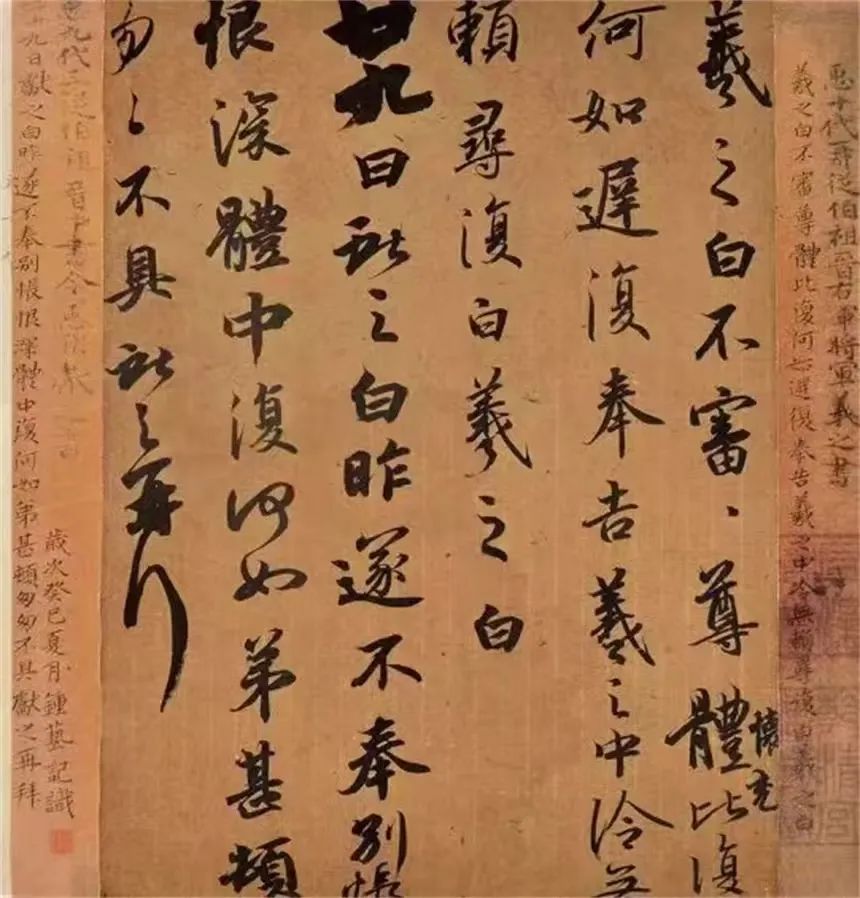 𢘑十代再從伯祖晉右軍將軍羲之書
羲之白不審尊體比復何如遲復奉告羲之中冷無賴尋復白羲之白
懷充
羲之白不審、尊體比復
何如遲復奉告羲之中冷無
賴尋復白羲之白
廿九日獻之白昨遂不奉別悵
恨深體中復何如弟甚頓
匆〻不具獻之再拜
𢘑九代三從伯祖晉中書令
十九日獻之白昨遂不奉別悵恨深體中復何如弟甚頓匆匆不具獻之再拜
歲次癸巳夏月鍾藝記識